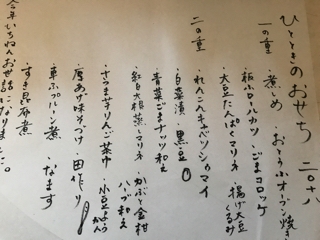 ひとときのおせち 二〇一八
一の重
・煮しめ ・おとうふオーブン焼き
・板小ロールカツ ・ごまコロッケ
・大豆たんぱくマリネ ・揚げ大豆くるみ
二の重 ・れんこんキャベツシュウマイ
・白菜漬 ・黒豆
・青菜ごまナッツ和え
・紅白大根蒸しマリネ ・かぶと金柑ハーブ和え
・さつま芋りんご茶巾 ・小豆ようかん
・唐あげ味そづけ ・田作り
・車ふプルーン煮 ・なます
・すき昆布煮
今年いちねんお世話になりました。